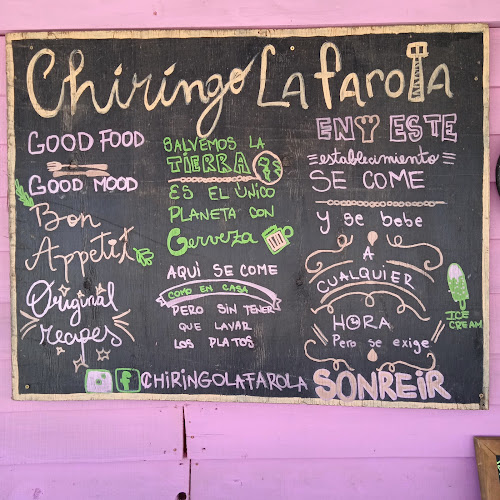 Chiringo La farola
GOOD FOOD
GOOD MOOD
Bon
Appetit
Original
recipes
SALVEMOS LA
TIERRA
ES EL ÚNICO
PLANETA CON
Cerveza
AQUI SE COME
COMO EN CASA
PERO SIN TENER
QUE LAVAR
LOS PLATOS
EN ESTE
establecimiento
SE COME
Y se bebe
A
CUALQUIER
HORA
Pero se exige
SONREIR
ICE
CREAM
f CHIRINGOLAFAROLA